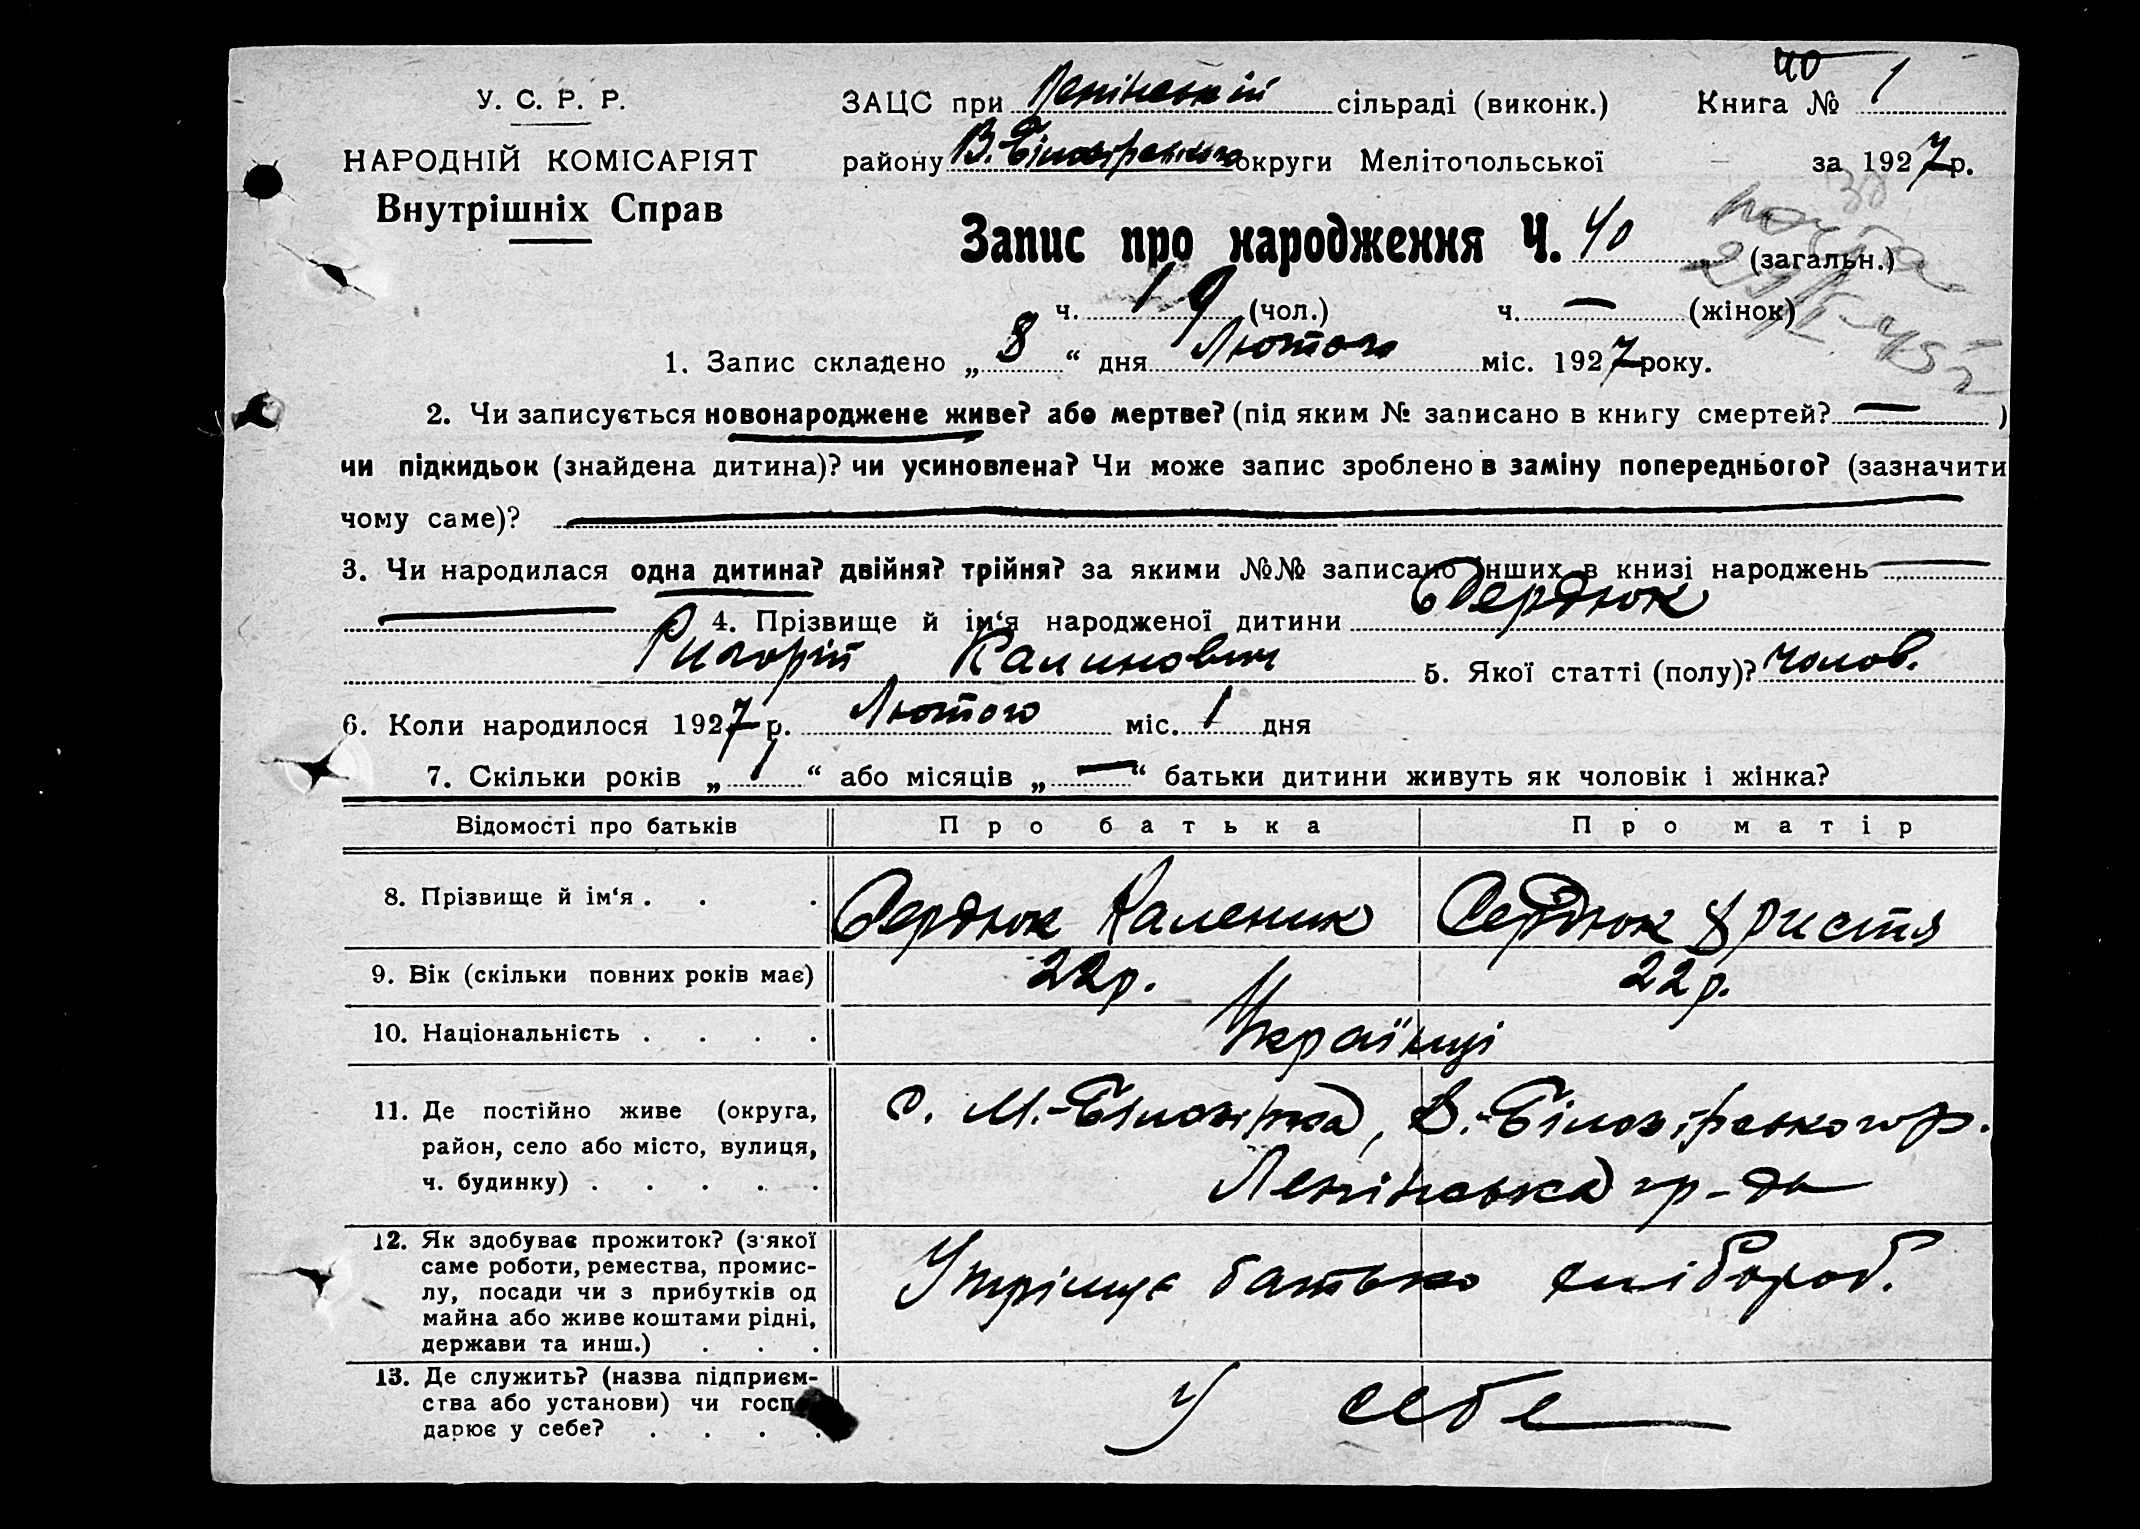 40
У. С. Р. Р.
ЗАЦС при Ленінській сільраді (виконк.) Книга № 1
НАРОДНІЙ КОМІСАРІЯТ
району В. Білозірського округи Мелітопольської за 1927 р.
Внутрішніх Справ
Запис про народження Ч. 40 (загальн.)
ч. 19 (чол.) ч. — (жінок)
1. Запис складено „ 8 “ дня Лютого міс. 1927 року.
2. Чи записується новонароджене живе? або мертве? (під яким № записано в книгу смертей? — )
чи підкидьок (знайдена дитина)? чи усиновлена? Чи може запис зроблено в заміну попереднього? (зазначити
чому саме)? —
3. Чи народилася одна дитина? двійня? трійня? за якими №№ записано інших в книзі народжень —
— 4. Прізвище й ім‘я народженої дитини Сердюк
Григорій Калинович 5. Якої статті (полу)? чолов.
6. Коли народилося 1927 р. Лютого міс. 1 дня
7. Скільки років „ 1 “ або місяців „ — “ батьки дитини живуть як чоловік і жінка?
Відомості про батьків Про батька Про матір
8. Прізвище й ім‘я . . . Сердюк Каленик Сердюк Христя
9. Вік (скільки повних років має) 22 р. 22 р.
10. Національність . . . . Українці
11. Де постійно живе (округа, с. М.-Білозірка, В.-Білозірського р.
район, село або місто, вулиця,
ч. будинку) . . . . . Ленінська гр-да
12. Як здобуває прожиток? (з‘якої
саме роботи, ремества, промис- Утрімує батько хлібороб.
лу, посади чи з прибутків од
майна або живе коштами рідні,
держави та инш.) . . .
13. Де служить? (назва підприєм-
ства або установи) чи госпо- У себе
дарює у себе? . . . .